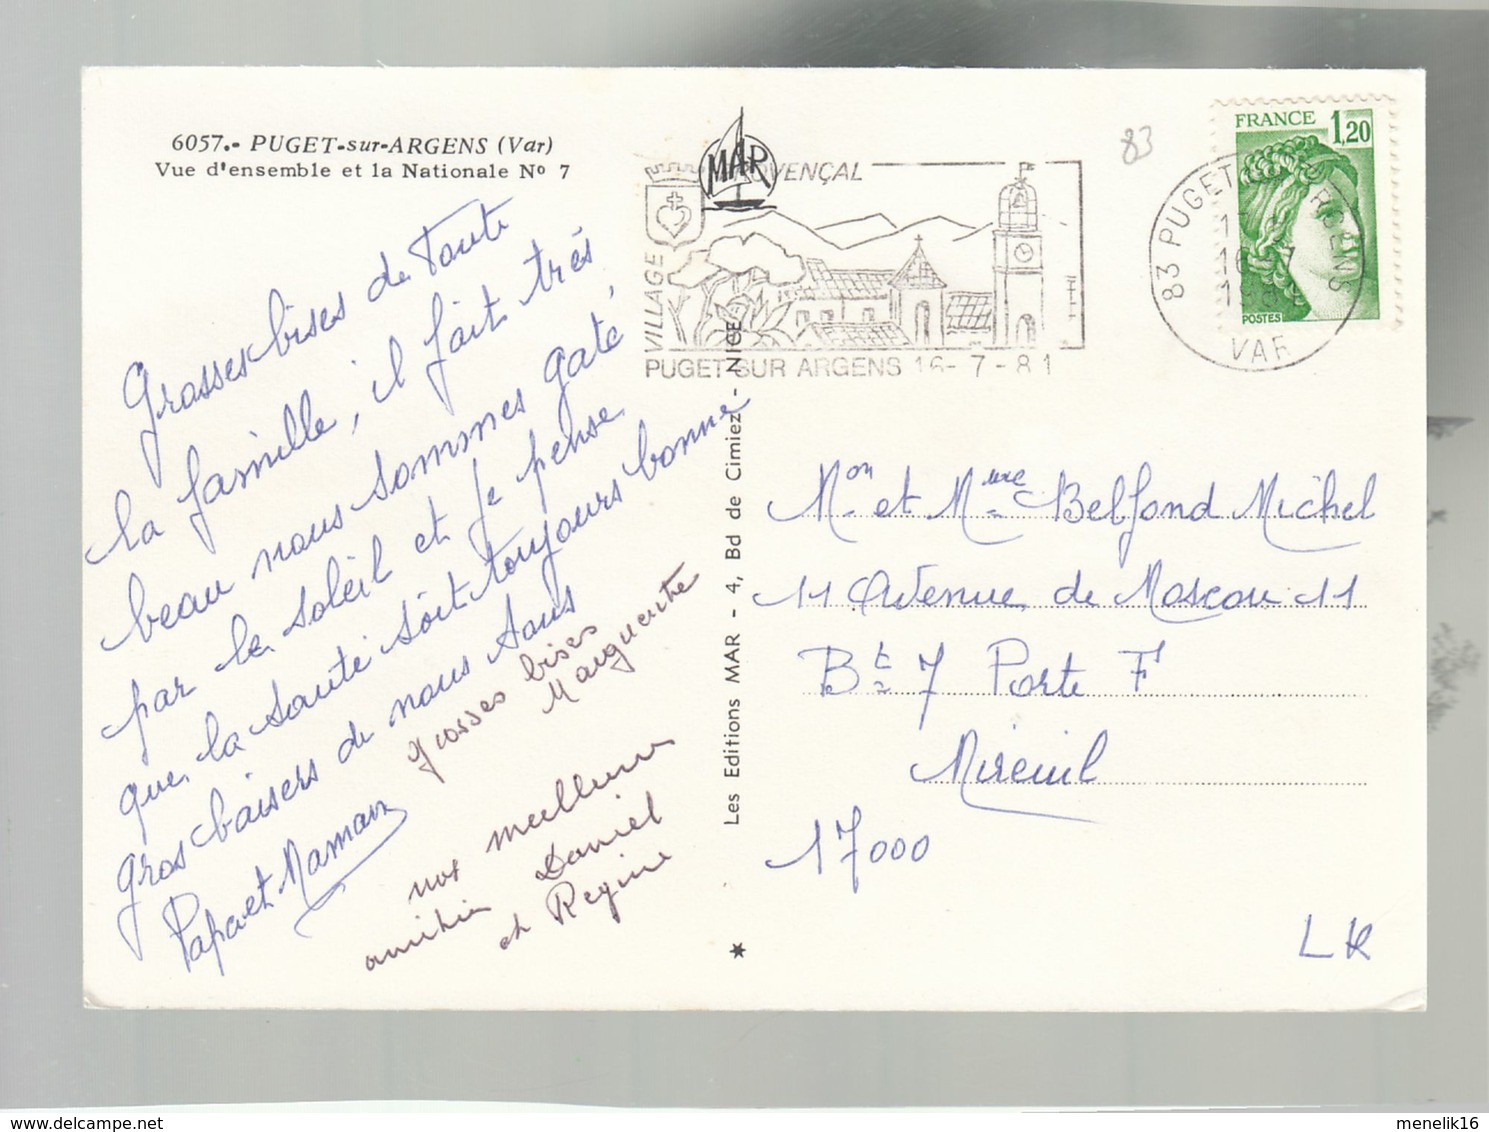 6057.- PUGET-sur-ARGENS (Var)
Vue d'ensemble et la Nationale Nº 7
Grosses bises de Toute
la famille, il fait très
beau nous sommes gaté
par le soleil et je pense
que la santé soit toujours bonne
gros baisers de nous tous
Papa et Maman
grosses bises
Marguerite
nos meilleures
amitiés Daniel
et Regine
MAR
VILLAGE
VENÇAL
PUGET SUR ARGENS 16-7-81
Les Editions MAR - 4, Bd de Cimiez - NICE
*
83
FRANCE 1,20
POSTES
83 PUGET RGENS
16-7
VAR
Mon et Mme Belfond Michel
11 Avenue de Moscou 11
Bt 7 Porte F
Mireuil
17000
LR
delcampe.net
menelik16